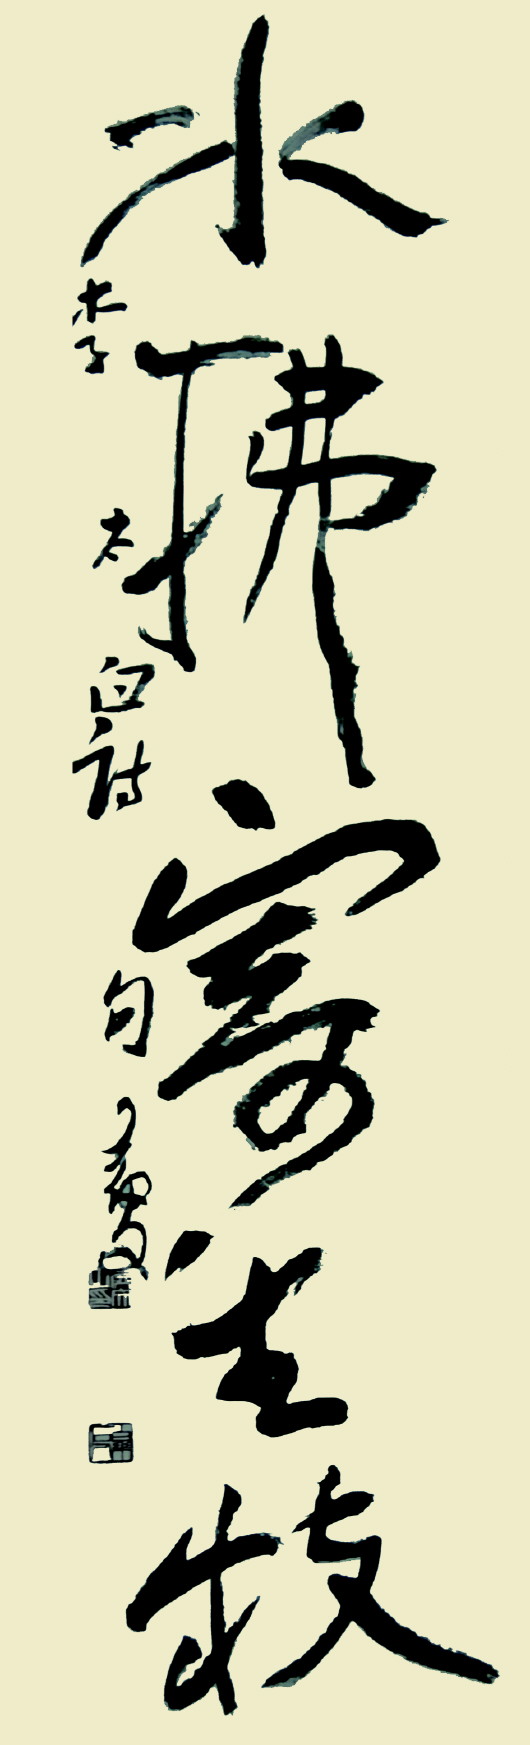 水拂寄生枝
李太白诗句